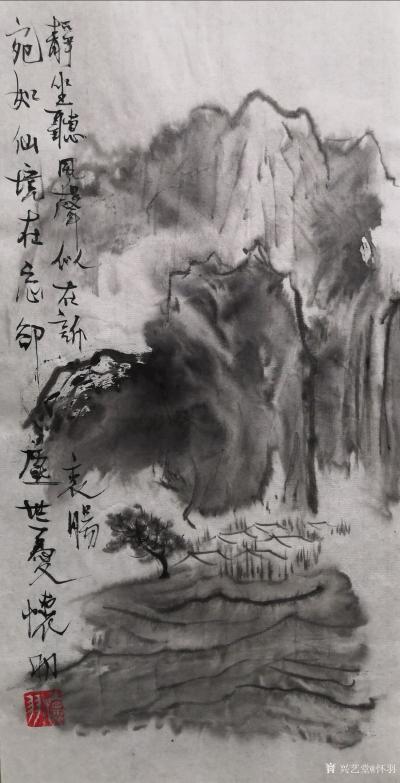 靜坐聽風聲似在訴衷腸
宛如仙境在忘卻塵世憂懷羽
兴艺堂@怀羽